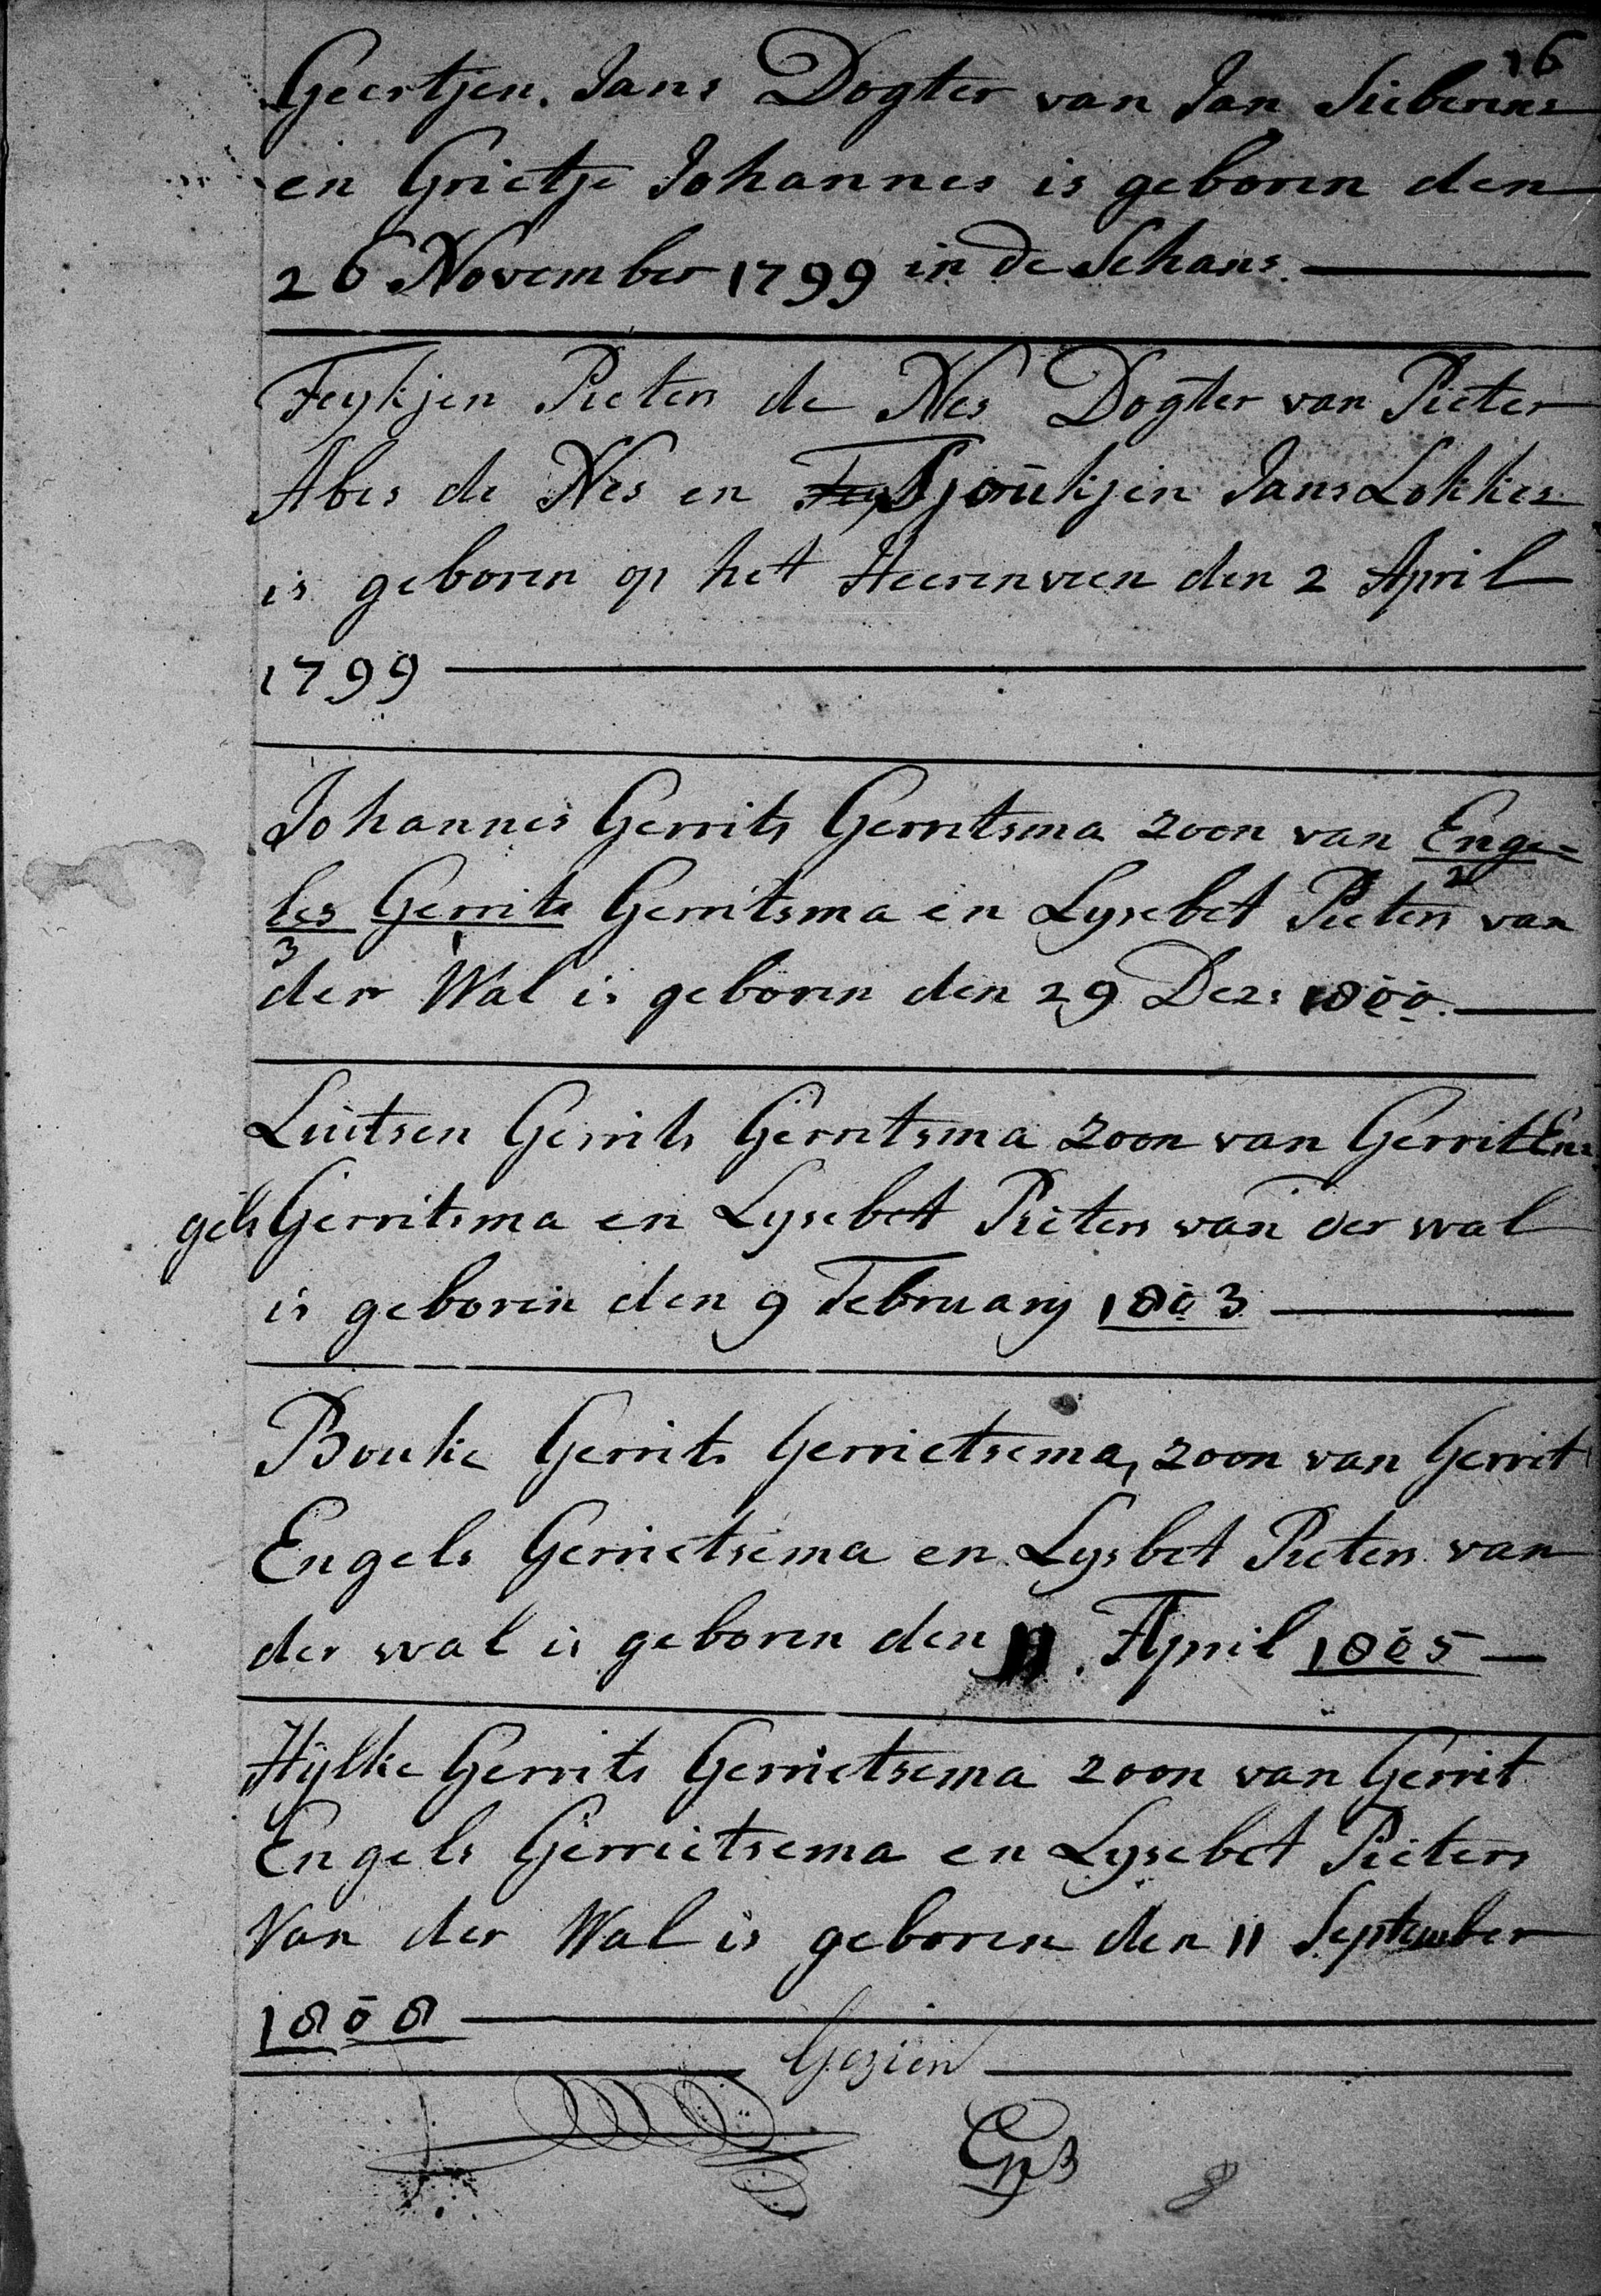 16
Geertjen. Jans Dogter van Jan Sieberens
en Grietje Johannes is geboren den
26 November 1799 in de Schans.
Feykjen Pieters de Nes Dogter van Pieter
Abes de Nes en Fey Tjoukjen Jans Lokkes
is geboren op het Heerenveen den 2 April
1799
Johannes Gerrits Gerritsma zoon van Enge=
les Gerrits Gerritsma en Lysebet Pieters van
3 1 2
der Wal is geboren den 29 Dez: 1800.
Luitsen Gerrits Gerritsma zoon van Gerrit En=
gels Gerritsma en Lysebet Pieters van der wal
is geboren den 9 February 1803
Bouke Gerrits Gerrietsema, zoon van Gerrit
Engels Gerrietsema en Lysbet Pieters van
der wal is geboren den 11. April 1805
Hylke Gerrits Gerrietsema zoon van Gerrit
Engels Gerrietsema en Lysebet Pieters
Van der Wal is geboren den 11 September
1808
Gezien